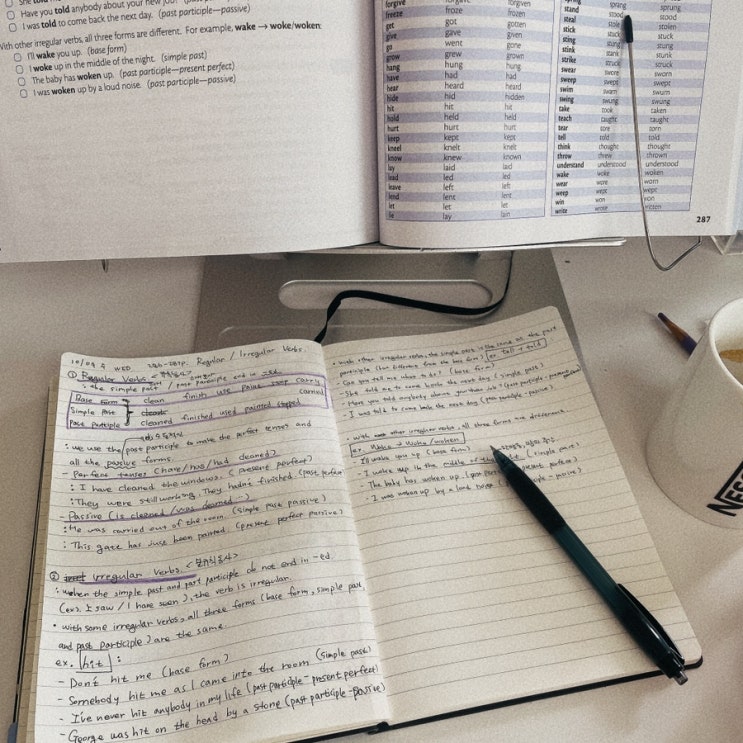 She told me
Have you told anybody about your new job? (past participle—
I was told to come back the next day. (past participle—passive)
With other irregular verbs, all three forms are different. For example, wake → woke/woken:
I'll wake you up. (base form)
I woke up in the middle of the night. (simple past)
The baby has woken up. (past participle—present perfect)
I was woken up by a loud noise. (past participle—passive)
forgive forgave forgiven
freeze froze frozen
get got gotten
give gave given
go went gone
grow grew grown
hang hung hung
have had had
hear heard heard
hide hid hidden
hit hit hit
hold held held
hurt hurt hurt
keep kept kept
kneel knelt knelt
know knew known
lay laid laid
lead led led
leave left left
lend lent lent
let let let
lie lay lain
spring sprang sprung
stand stood stood
steal stole stolen
stick stuck stuck
sting stung stung
stink stank stunk
strike struck struck
swear swore sworn
sweep swept swept
swim swam swum
swing swung swung
take took taken
teach taught taught
tear tore torn
tell told told
think thought thought
throw threw thrown
understand understood understood
wake woke woken
wear wore worn
weep wept wept
win won won
write wrote written
287
WED Regular / Irregular Verbs.
① Regular Verbs
: the simple past / past participle end in -ed.
Base form clean finish use paint carry
Simple past
Past participle cleaned finished used painted carried
: we use the past participle to make the perfect tenses and
all the passive forms.
- Perfect tenses (have/has/had cleaned)
: I have cleaned the windows. (present perfect)
: They were still working. They hadn't finished. (past perfect)
- Passive (is cleaned / was cleaned ...)
: He was carried out of the room. (simple past passive)
: This gate has just been painted. (present perfect passive)
② irregular verbs.
: when the simple past and past participle do not end in -ed.
(ex). I saw / I have seen), the verb is irregular.
• with some irregular verbs, all three forms (base form, simple past,
and past participle) are the same.
ex. hit :
- Don't hit me (base form)
- Somebody hit me as I came into the room (simple past)
- I've never hit anybody in my life (past participle - present perfect)
- George was hit on the head by a stone (past participle - passive)
• with other irregular verbs, the simple past is the same as the past
participle (but different from the base form) ex. tell → told
- Can you tell me what to do? (base form)
- She told me to come back the next day (simple past)
- Have you told anybody about your new job? (past participle - present perfect)
- I was told to come back the next day (past participle - passive).
• with other irregular verbs, all three forms are different.
ex. wake → woke/woken
- I'll wake you up (base form)
- I woke up in the middle of the (simple past)
- The baby has woken up. (past present perfect)
- I was woken up by a loud noise (past participle - passive)
NES